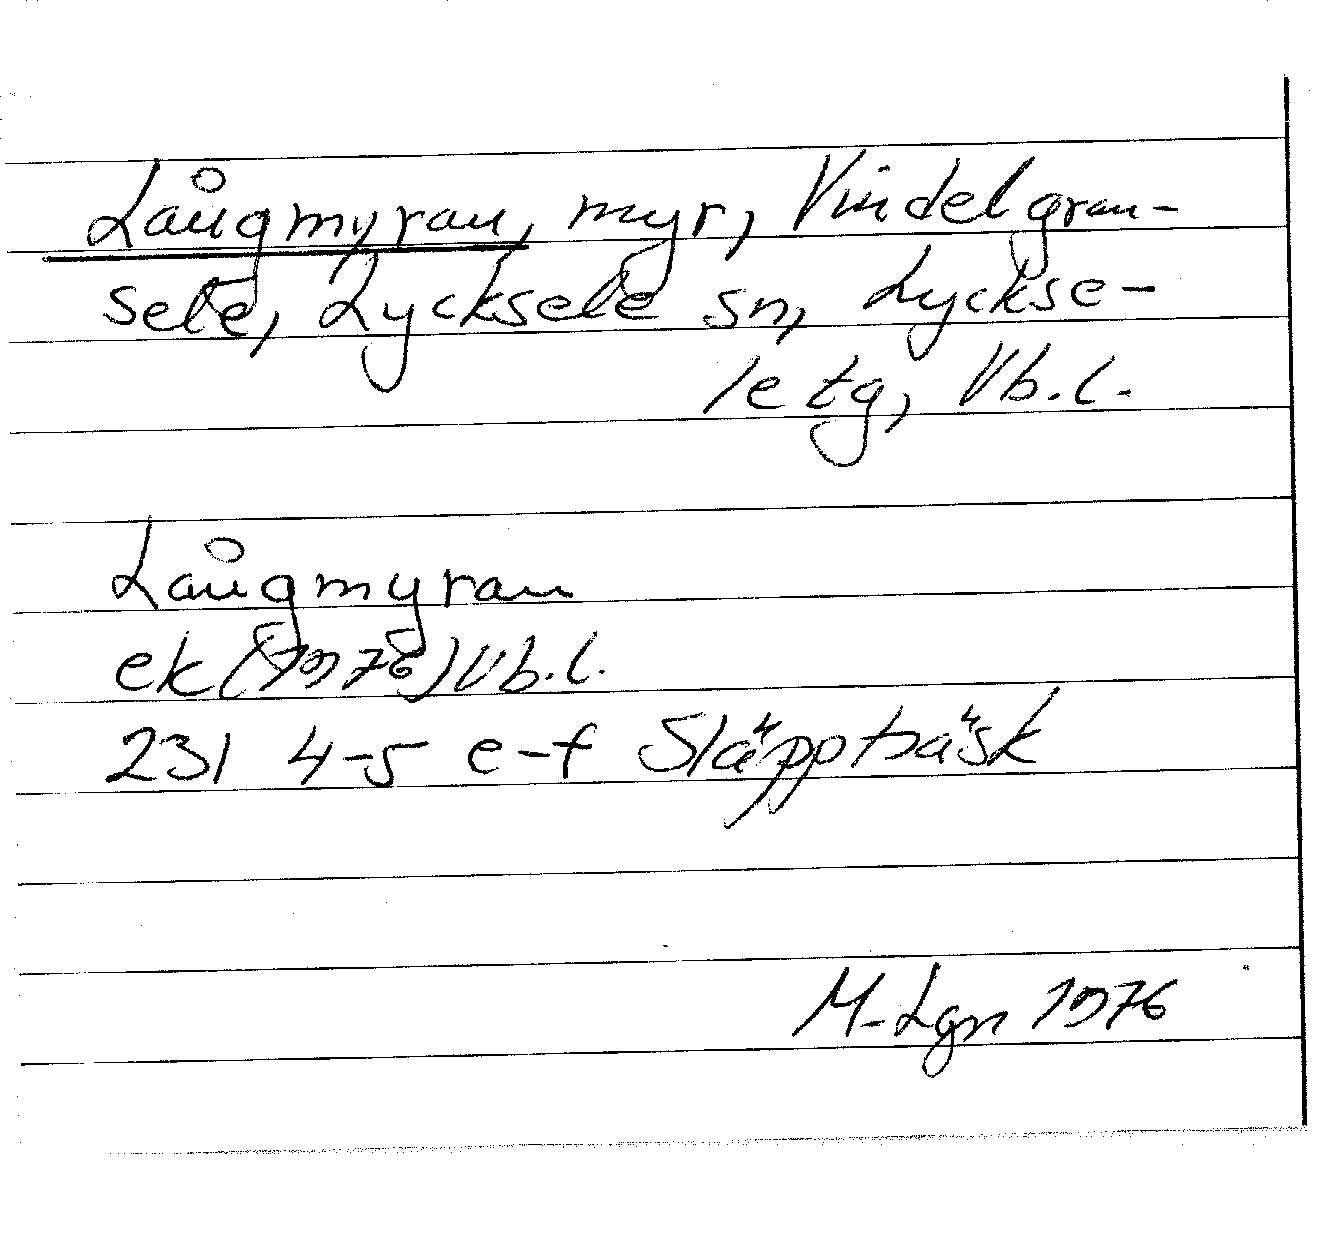 Långmyran, myr, Vindelgran-
sele, Lycksele sn, Lyckse-
le tg, Vb.l.
Långmyran
ek (1976) Vb.l.
231 4-5 e-f Släppträsk
M-Lgn 1976